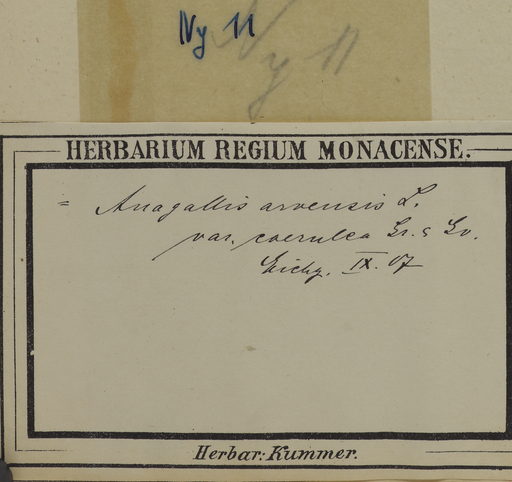 Ny 11
Ny 11
HERBARIUM REGIUM MONACENSE.
= Anagallis arvensis L.
var. coerulea Gr. & Go.
IX. 07
Herbar: Kummer.